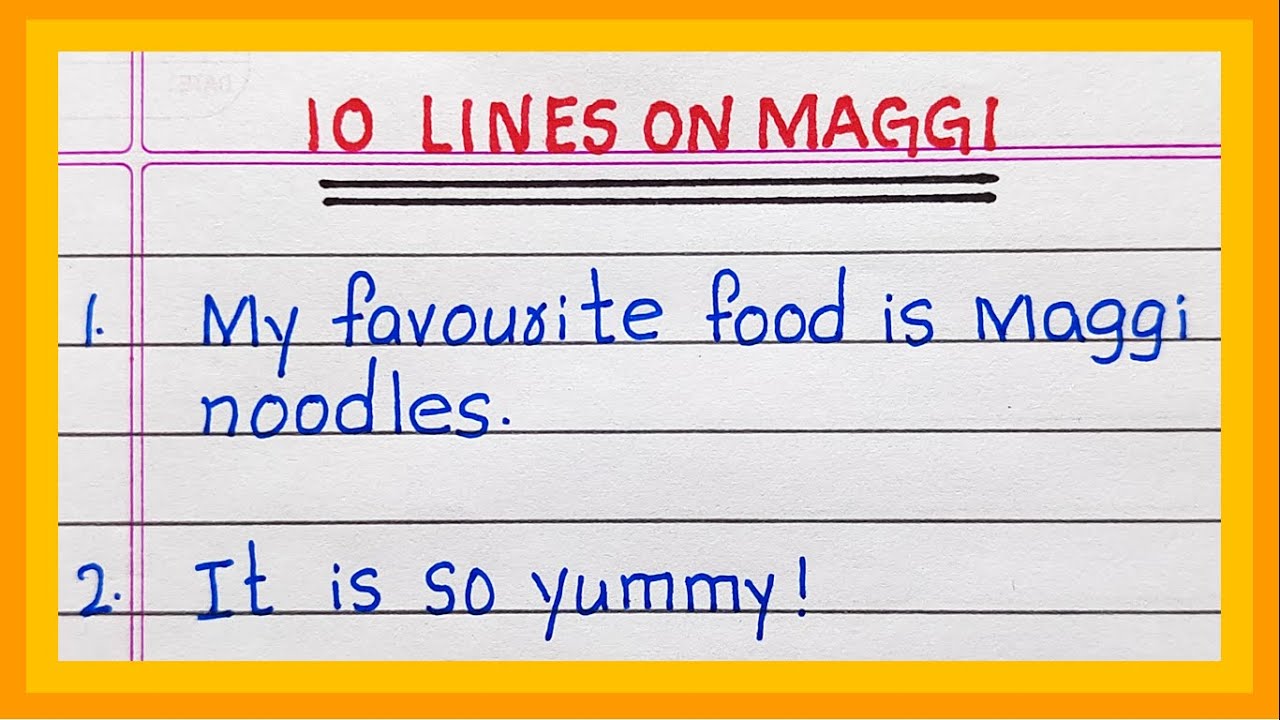 10 LINES ON MAGGI
1. My favourite food is Maggi
noodles.
2. It is so yummy!